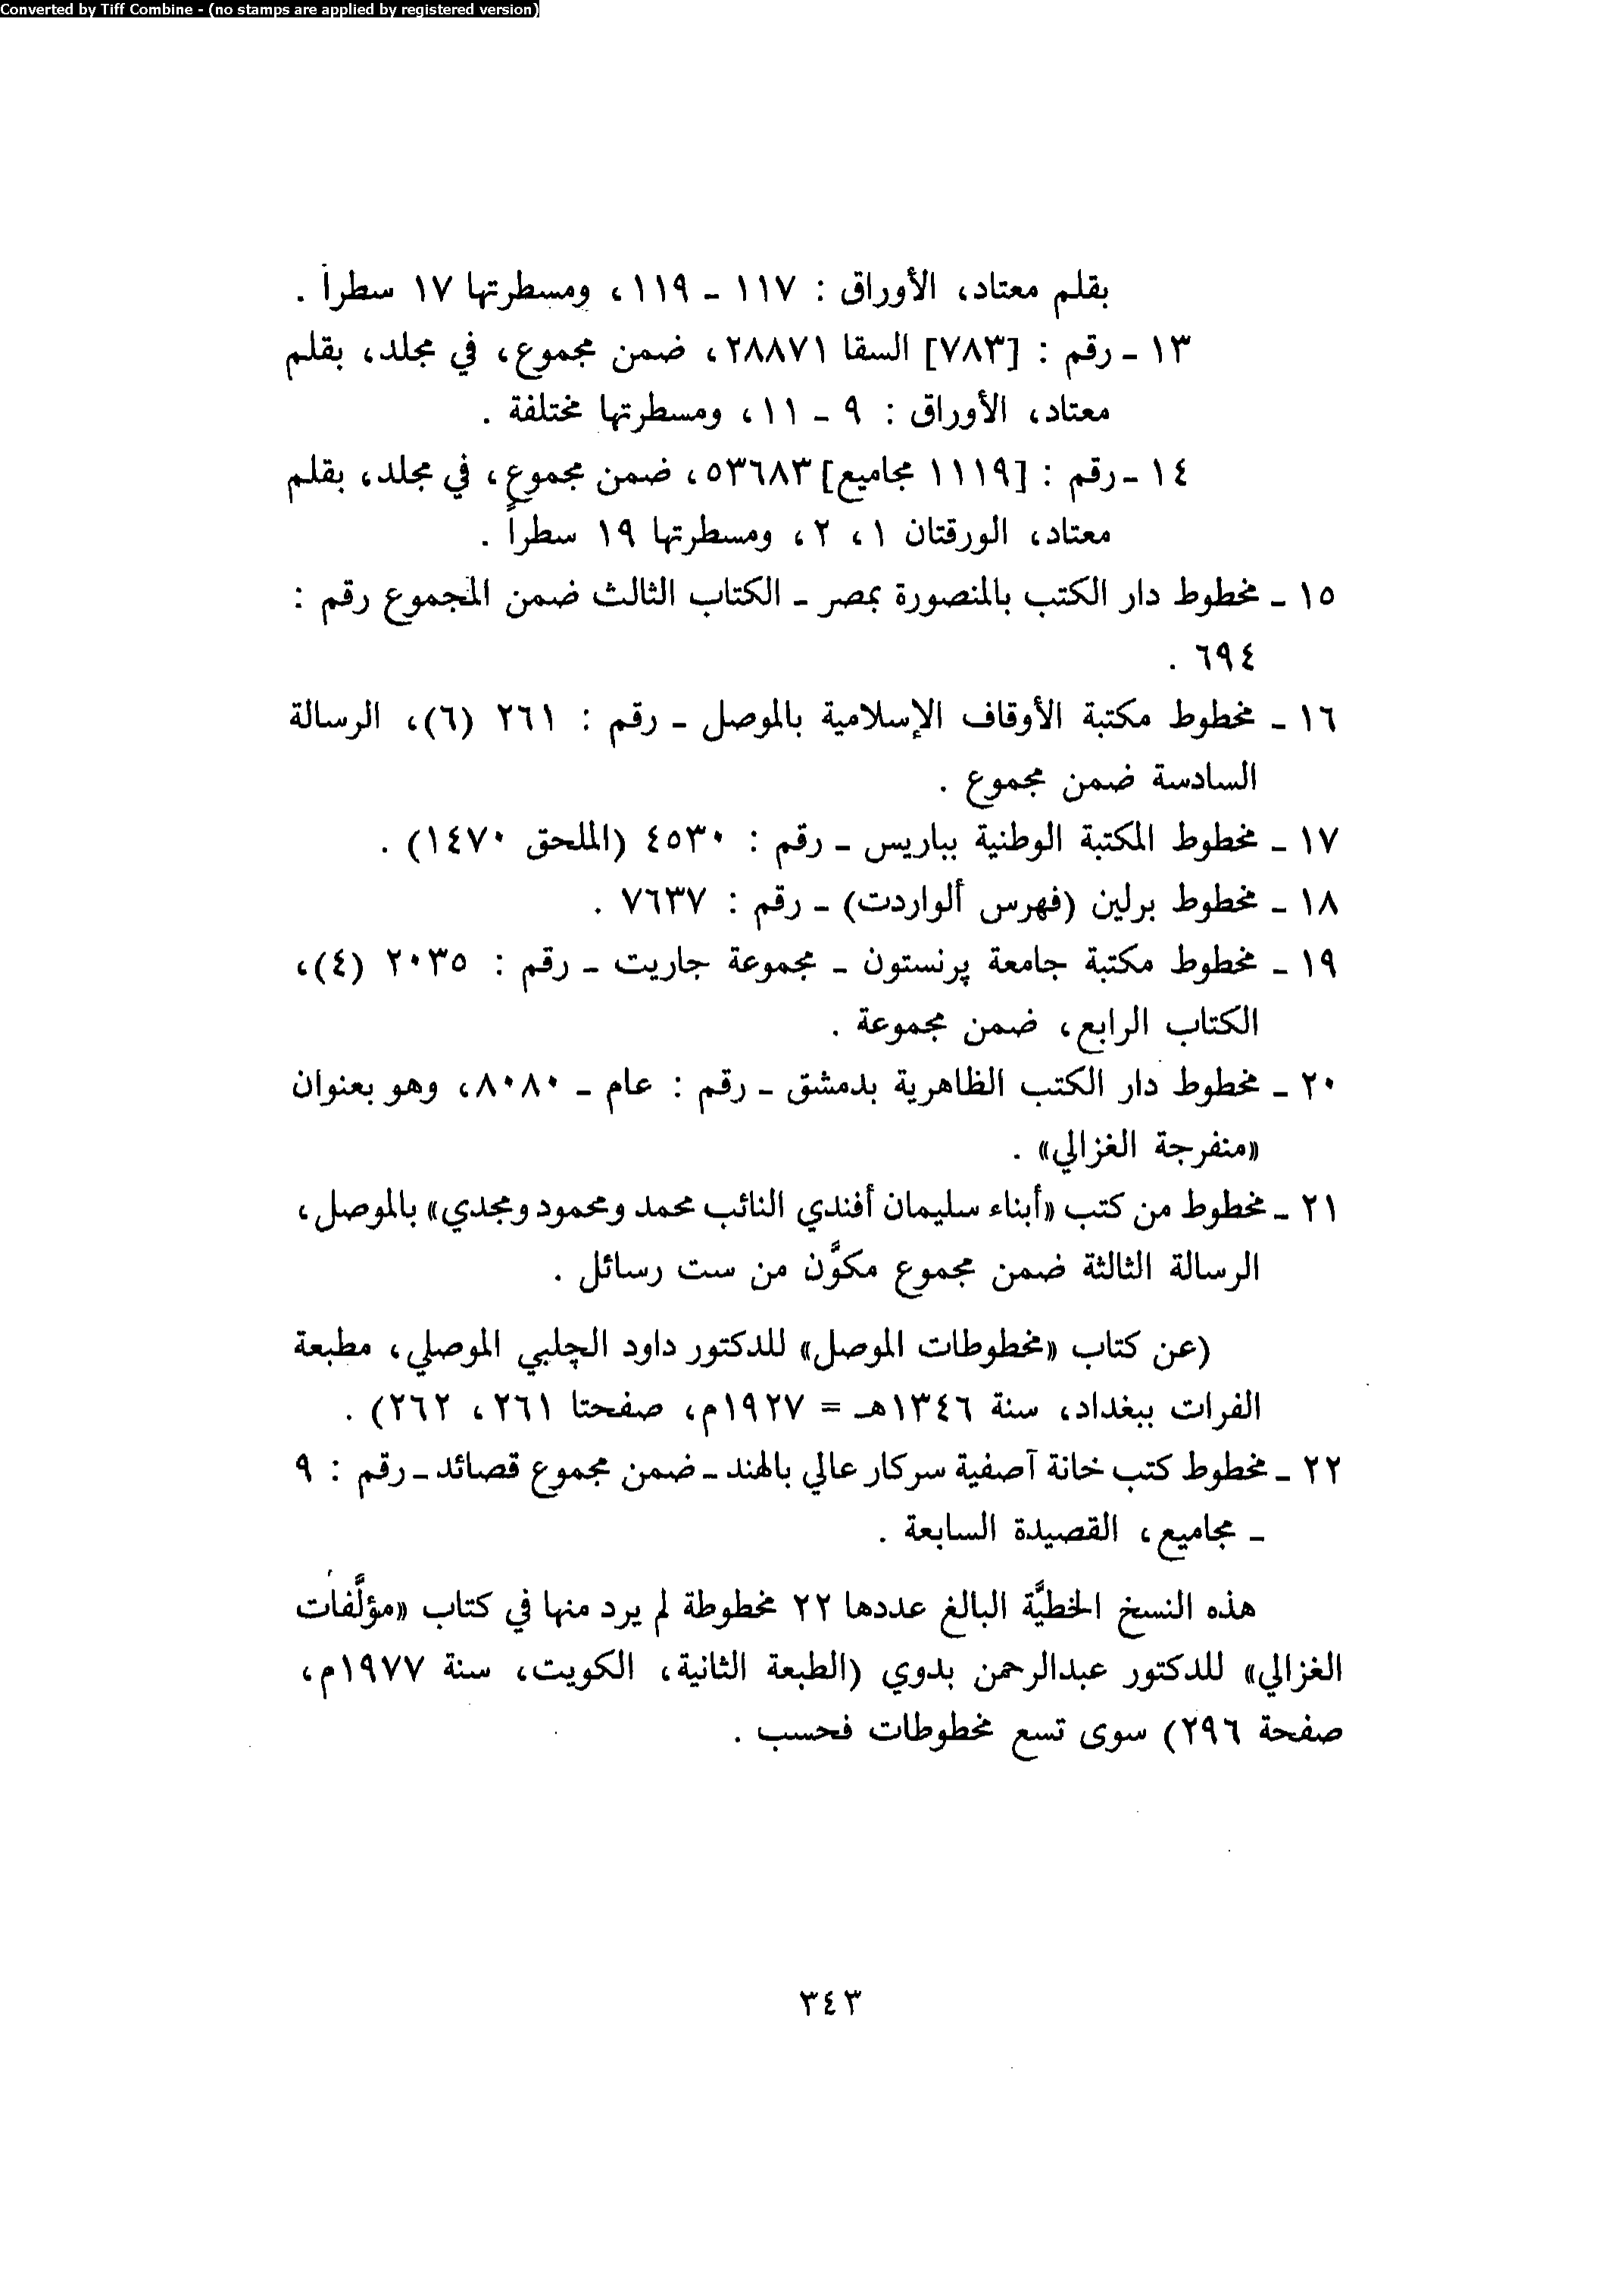 Converted by Tiff Combine - (no stamps are applied by registered version)
بقلم معتاد، الأوراق : ١١٧ ـ ١١٩، ومسطرتها ١٧ سطراً .
١٣ ـ رقم : [٧٨٣] السقا ٢٨٨٧١، ضمن مجموع، في مجلد، بقلم
معتاد، الأوراق : ٩ ـ ١١، ومسطرتها مختلفة .
١٤ ـ رقم : [١١١٩ مجاميع] ٥٣٦٨٣، ضمن مجموع، في مجلد، بقلم
معتاد، الورقتان ١، ٢، ومسطرتها ١٩ سطراً .
١٥ ـ مخطوط دار الكتب بالمنصورة بمصر ـ الكتاب الثالث ضمن المجموع رقم :
٦٩٤ .
١٦ ـ مخطوط مكتبة الأوقاف الإسلامية بالموصل ـ رقم : ٢٦١ (٦)، الرسالة
السادسة ضمن مجموع .
١٧ ـ مخطوط المكتبة الوطنية بباريس ـ رقم : ٤٥٣٠ (الملحق ١٤٧٠) .
١٨ ـ مخطوط برلين (فهرس ألواردت) ـ رقم : ٧٦٣٧ .
١٩ ـ مخطوط مكتبة جامعة پرنستون ـ مجموعة جاريت ـ رقم : ٢٠٣٥ (٤)،
الكتاب الرابع، ضمن مجموعة .
٢٠ ـ مخطوط دار الكتب الظاهرية بدمشق ـ رقم : عام ـ ٨٠٨٠، وهو بعنوان
«منفرجة الغزالي» .
٢١ ـ مخطوط من كتب «أبناء سليمان أفندي النائب محمد ومحمود ومجدي» بالموصل،
الرسالة الثالثة ضمن مجموع مكوَّن من ست رسائل .
(عن كتاب «مخطوطات الموصل» للدكتور داود الچلبي الموصلي، مطبعة
الفرات ببغداد، سنة ١٣٤٦هـ = ١٩٢٧م، صفحتا ٢٦١، ٢٦٢) .
٢٢ ـ مخطوط كتب خانة آصفية سركار عالي بالهند ـ ضمن مجموع قصائد ـ رقم : ٩
ـ مجاميع، القصيدة السابعة .
هذه النسخ الخطيَّة البالغ عددها ٢٢ مخطوطة لم يرد منها في كتاب «مؤلَّفات
الغزالي» للدكتور عبدالرحمن بدوي (الطبعة الثانية، الكويت، سنة ١٩٧٧م،
صفحة ٢٩٦) سوى تسع مخطوطات فحسب .
٣٤٣